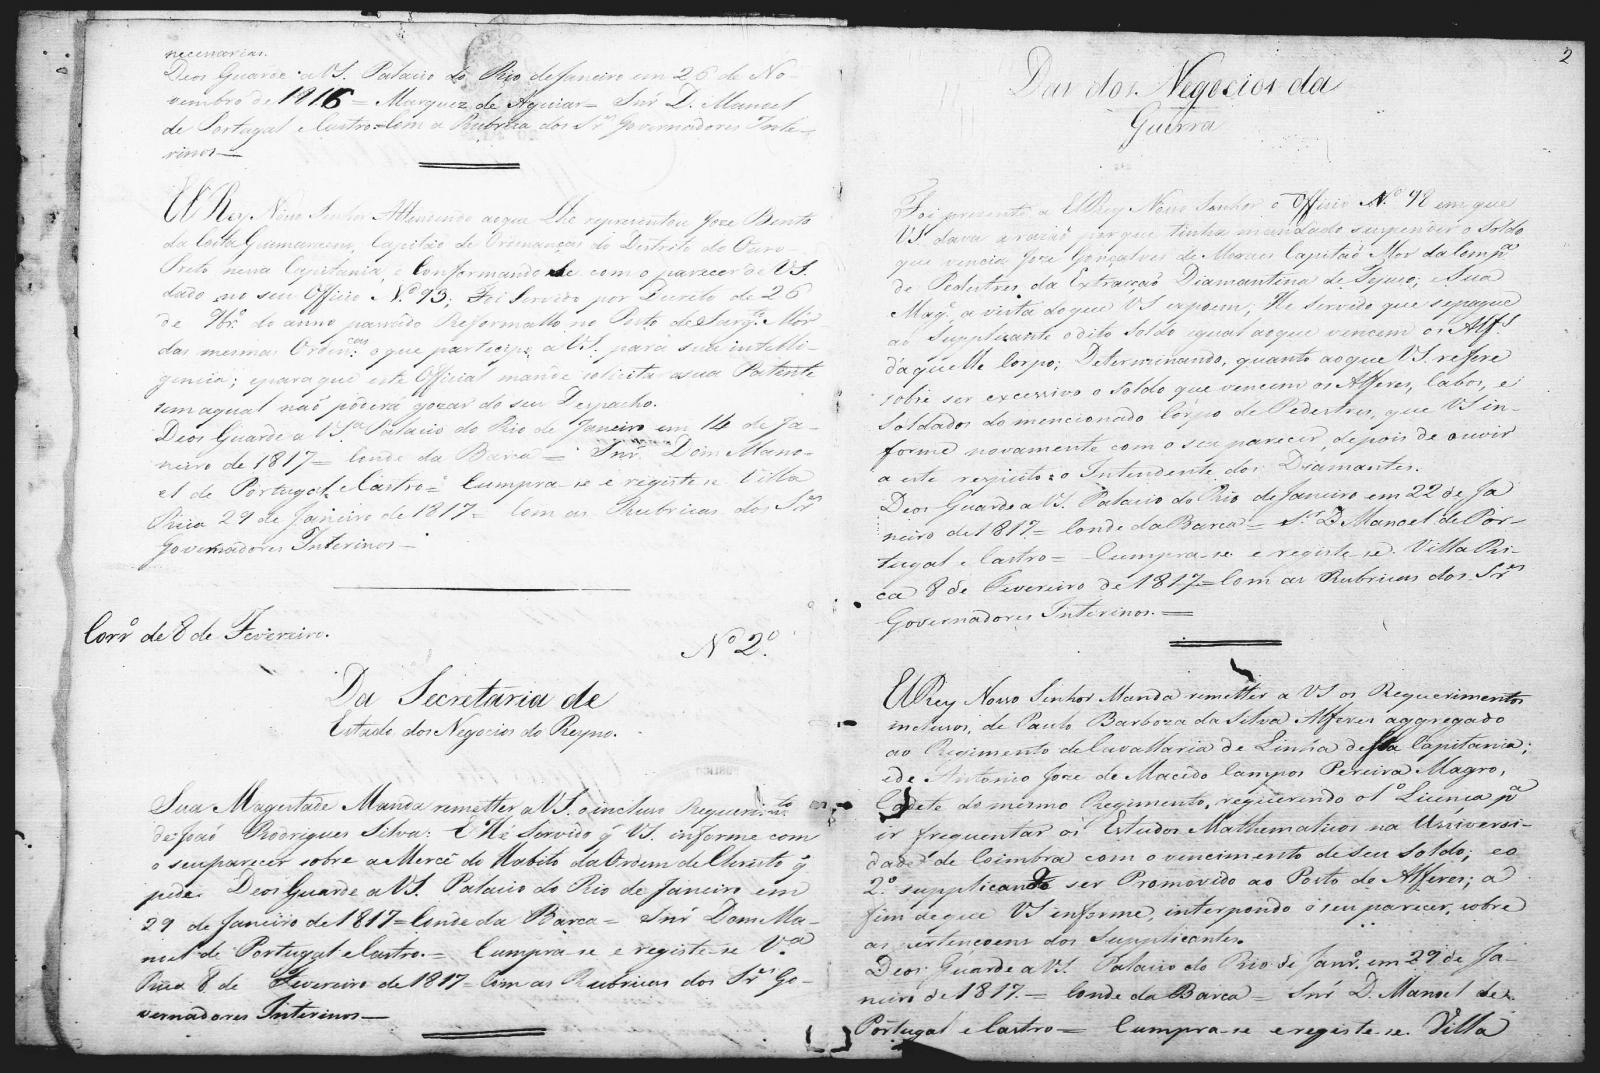 necessarias.
Deos Guarde a VS. Palacio do Rio de Janeiro em 26 de No-
vembro de 1816 = Marquez de Aguiar = Snr̃ D. Manoel
de Portugal e Castro = Com a Rubrica dos Sres Governadores Inte-
rinos —
ElRey Nosso Senhor Attendendo ao que Lhe representou Joze Bento
da Costa Guimaraens, Capitão de Ordenanças do Districto do Ouro
Preto nessa Capitania, e Conformando-se com o parecer de VS.
dado no seu Officio N.º 93; Foi Servido por Decreto de 26
de 9br.º do anno passado Reformallo no Posto de Sarg.to Mór
das mesmas Orden.cas o que participo a VS. para sua intelli-
gencia; e para que este Official mande solicitar a sua Patente
sem a qual naõ poderá gozar do seu Despacho.
Deos Guarde a VS.a Palacio do Rio de Janeiro em 14 de Ja-
neiro de 1817 = Conde da Barca = Snr̃ Dom Mano-
el de Portugal e Castro = Cumpra-se e registe-se Villa
Rica 29 de Janeiro de 1817 = Com as Rubricas dos Sres
Governadores Interinos —
Corr.º de 8 de Fevereiro.
Nº 2.º
Da Secretaria de
Estado dos Negocios do Reyno.
Sua Magestade Manda remetter a VS. o incluso Requerim.to
de Joaõ Rodrigues Silva: E Hé Servido q̃ VS. informe com
o seu parecer sobre a Mercê do Habito da Ordem de Christo q̃
pede. Deos Guarde a VS. Palacio do Rio de Janeiro em
29 de Janeiro de 1817 = Conde da Barca = Snr̃ Dom Ma-
noel de Portugal e Castro. = Cumpra-se e registe-se V.a
Rica 8 de Fevereiro de 1817 = Com as Rubricas dos Sres Go-
vernadores Interinos —
2
Da dos Negocios da
Guerra
Foi presente a ElRey Nosso Senhor o Officio N.º 98 em que
VS. dava a razaõ porque tinha mandado suspender o Soldo
que vencia Joze Gonçalves de Moraes Capitaõ Mór da Comp.a
de Pedestres da Extracçaõ Diamantina do Tejuco; e Sua
Mag.e a vista do que VS expoem, He servido que se pague
ao Supplicante o dito Soldo igual ao que vencem os Alf.s
d'aquelle Corpo; Determinando, quanto ao que VS. refere
sobre ser excessivo o Soldo que vencem os Alferes, Cabos, e
Soldados do mencionado Corpo de Pedestres, que VS in-
forme novamente com o seu parecer, depois de ouvir
a este respeito o Intendente dos Diamantes.
Deos Guarde a VS. Palacio do Rio de Janeiro em 22 de Ja
neiro de 1817. = Conde da Barca = S.r D. Manoel de Por-
tugal e Castro = Cumpra-se e registe-se. Villa Ri-
ca 8 de Fevereiro de 1817 = Com as Rubricas dos Sres
Governadores Interinos. =
ElRey Nosso Senhor Manda remetter a VS os Requerimentos
inclusos, de Paulo Barboza da Silva Alferes aggregado
ao Regimento de Cavallaria de Linha desta Capitania;
e de Antonio Joze de Macedo Campos Pereira Magro,
Cadete do mesmo Regimento, requerendo o 1.º Licença p.a
ir frequentar os Estudos Mathematicos na Universi-
dade de Coimbra com o vencimento de seu Soldo; e o
2.º supplicando ser Promovido ao Posto de Alferes; a
fim de que VS informe, interpondo o seu parecer, sobre
as pertençoens dos Supplicantes.
Deos Guarde a VS. Palacio do Rio de Janr.º em 29 de Ja-
neiro de 1817. = Conde da Barca = Snr̃ D. Manoel de
Portugal e Castro = Cumpra-se e registe-se. Villa